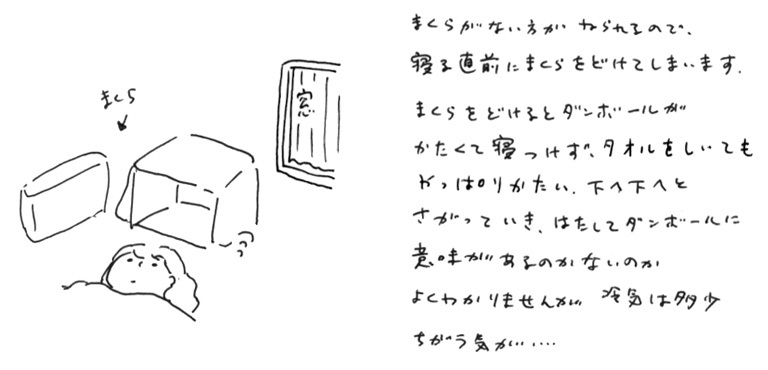 まくら
窓
まくらがない方がねられるので、
寝る直前にまくらをどけてしまいます。
まくらをどけるとダンボールが
かたくて寝つけず、タオルをしいても
やっぱりかたい。下へ下へと
さがっていき、はたしてダンボールに
意味があるのかないのか
よくわかりませんが 冷気は多少
ちがう気が‥‥